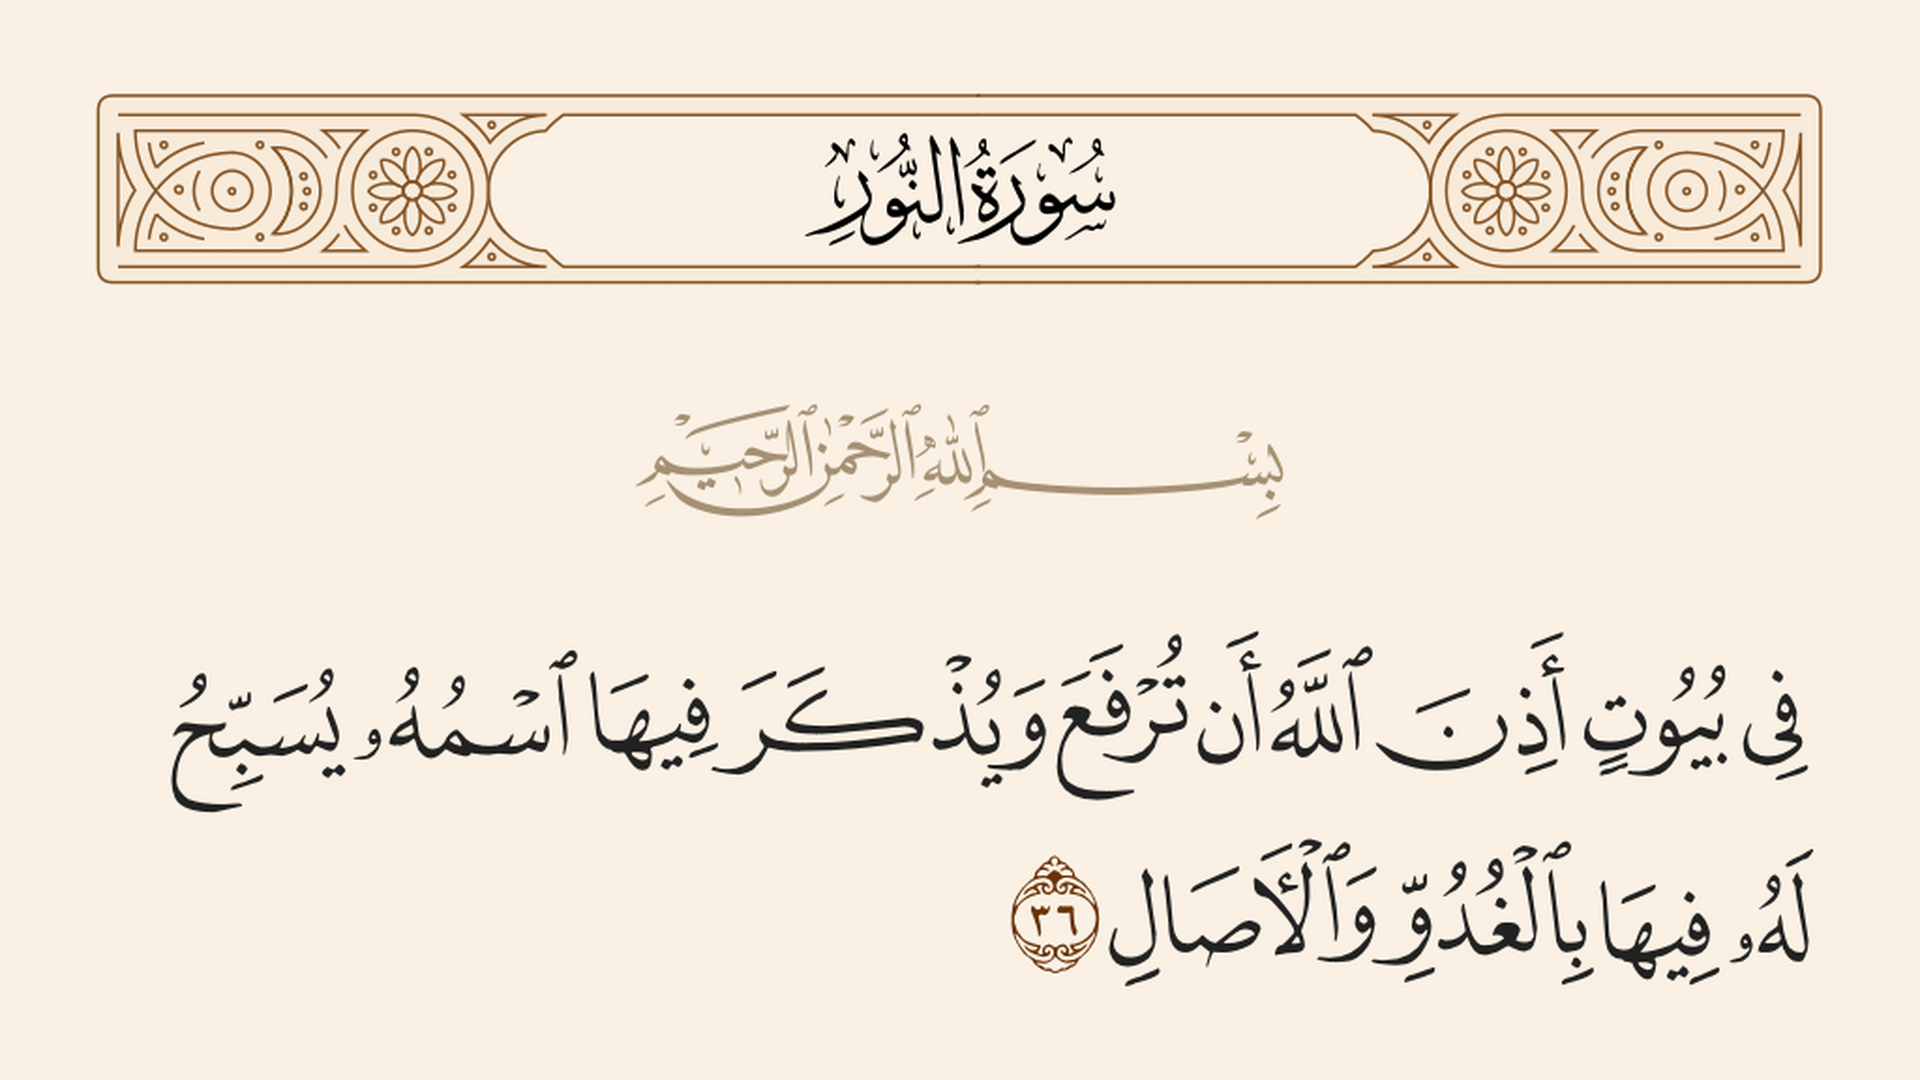 سُورَةُ النُّورِ
بِسْمِ ٱللَّهِ ٱلرَّحْمَٰنِ ٱلرَّحِيمِ
فِى بُيُوتٍ أَذِنَ ٱللَّهُ أَن تُرْفَعَ وَيُذْكَرَ فِيهَا ٱسْمُهُۥ يُسَبِّحُ
لَهُۥ فِيهَا بِٱلْغُدُوِّ وَٱلْأَصَالِ ٣٦